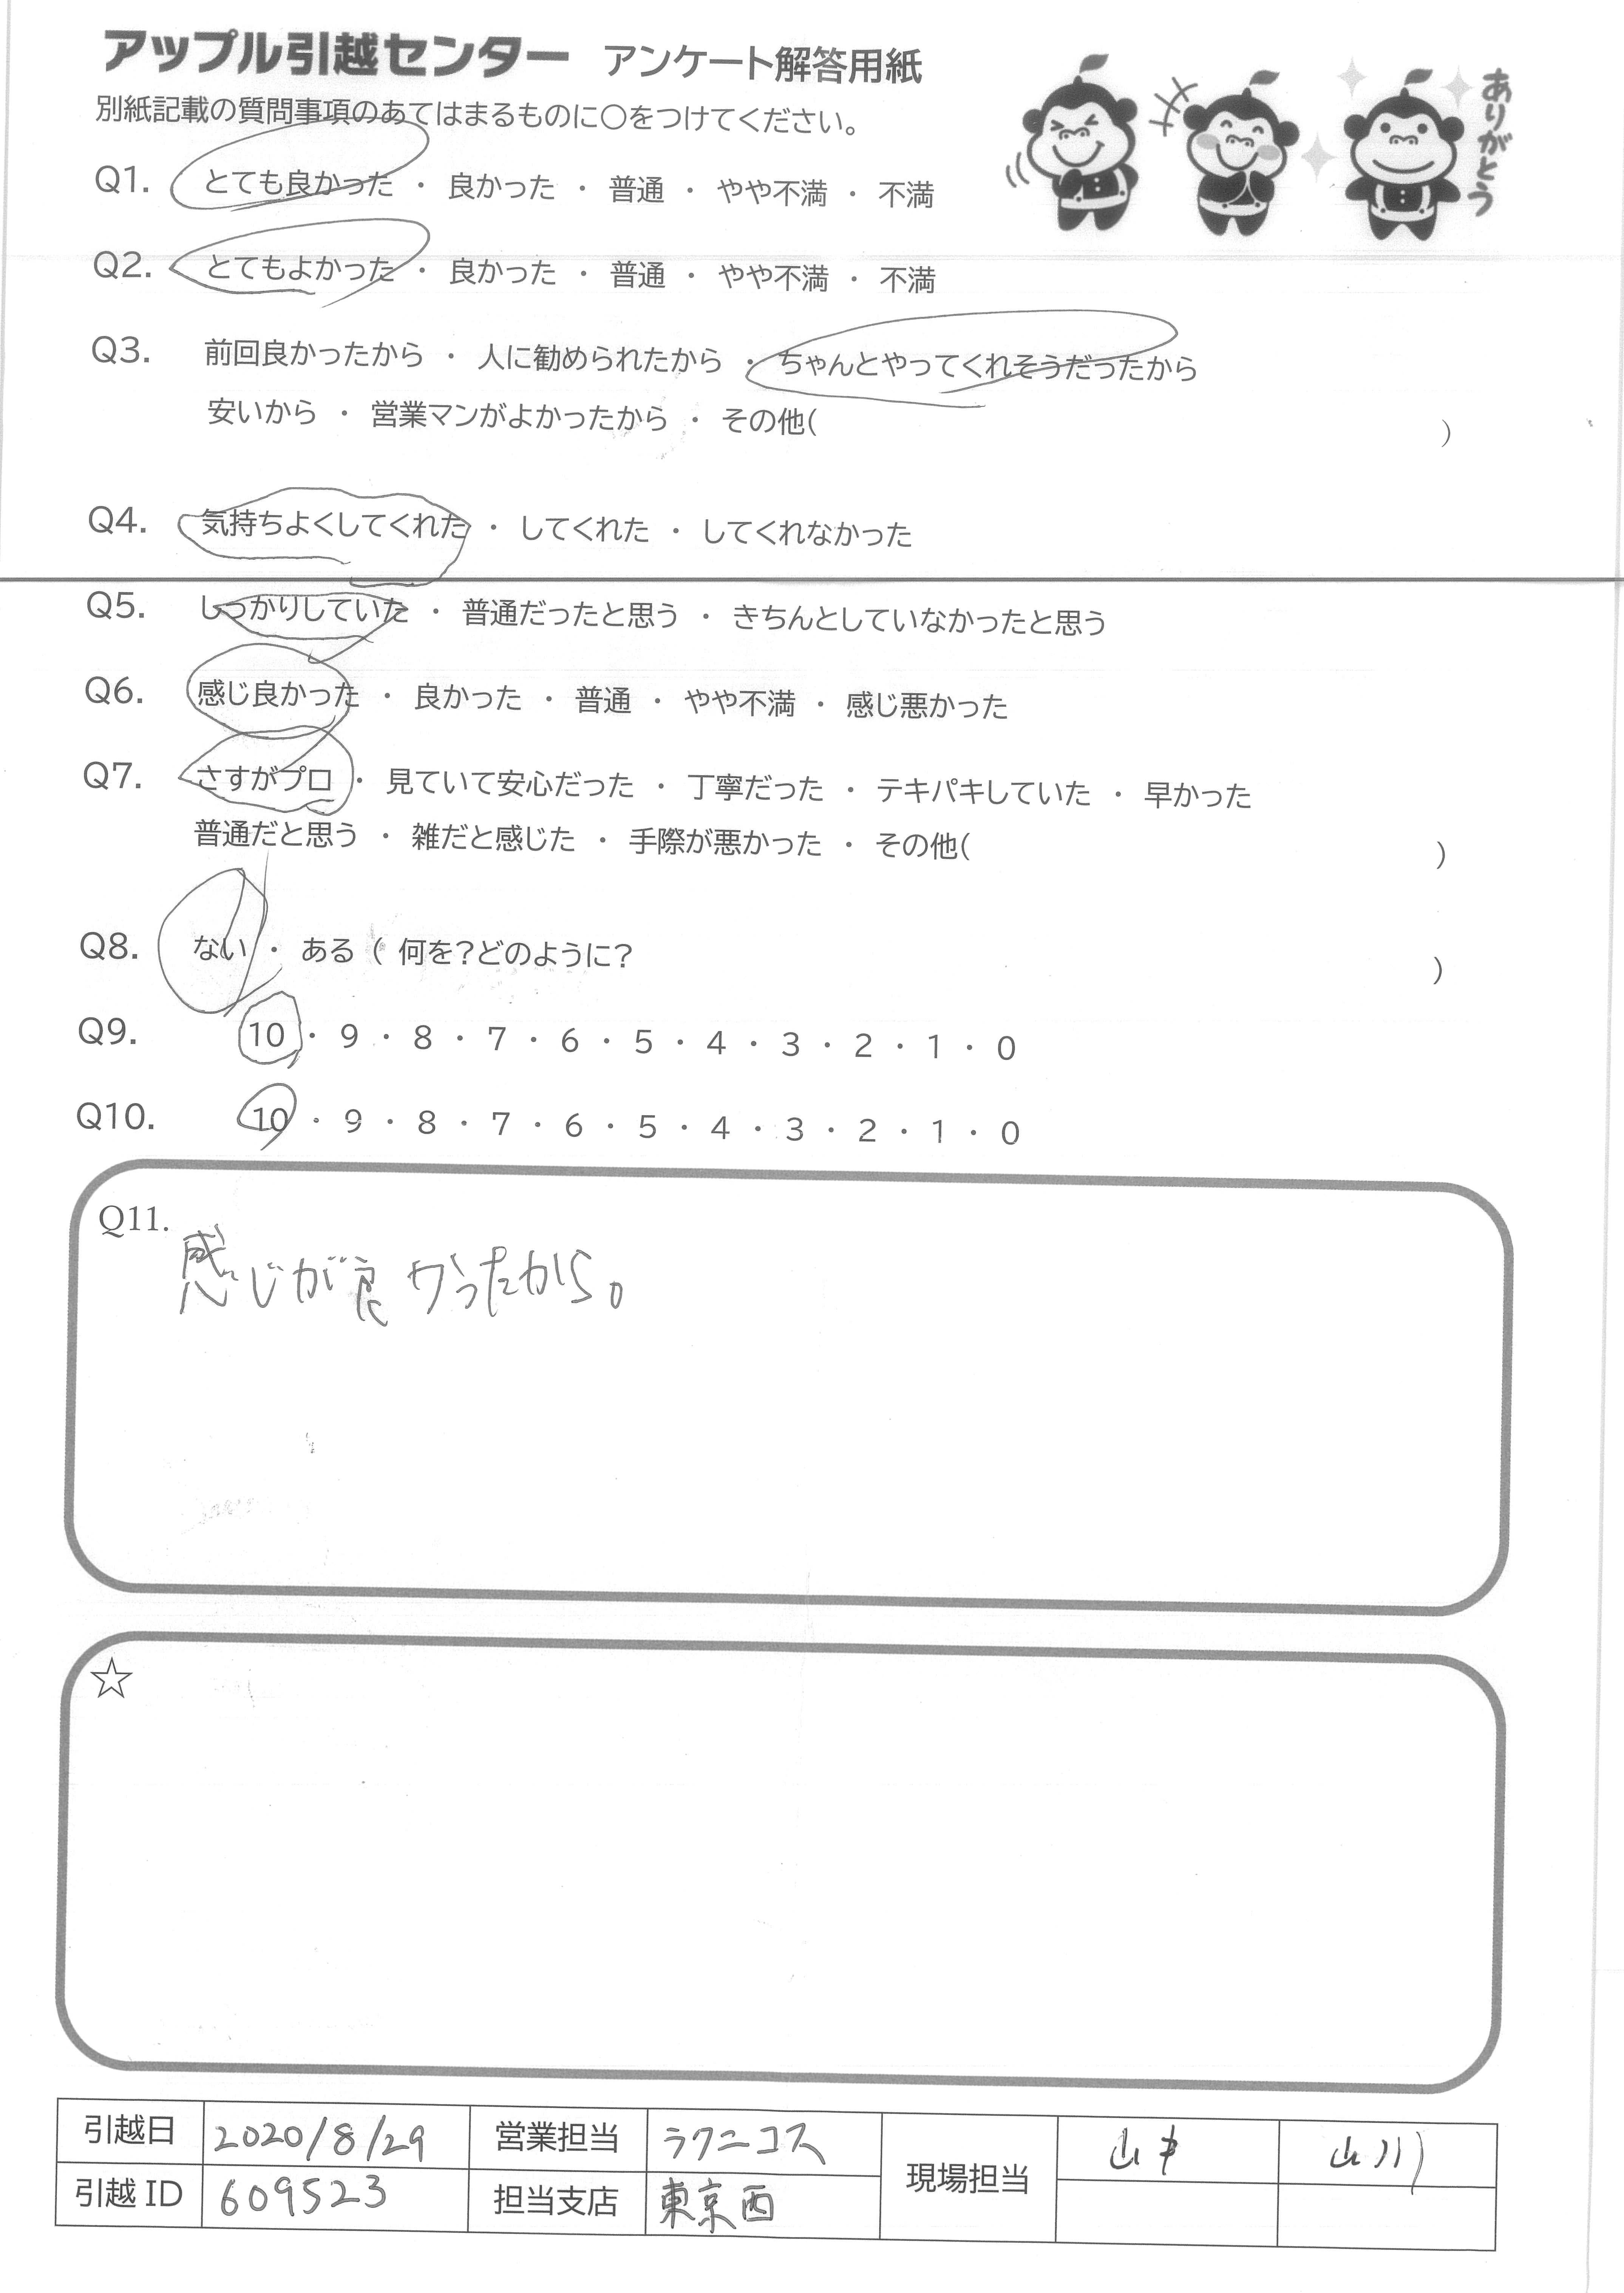 アップル引越センター アンケート解答用紙
別紙記載の質問事項のあてはまるものに○をつけてください。
ありがとう
Q1. とても良かった ・ 良かった ・ 普通 ・ やや不満 ・ 不満
Q2. とてもよかった ・ 良かった ・ 普通 ・ やや不満 ・ 不満
Q3. 前回良かったから ・ 人に勧められたから ・ ちゃんとやってくれそうだったから
安いから ・ 営業マンがよかったから ・ その他( )
Q4. 気持ちよくしてくれた ・ してくれた ・ してくれなかった
Q5. しっかりしていた ・ 普通だったと思う ・ きちんとしていなかったと思う
Q6. 感じ良かった ・ 良かった ・ 普通 ・ やや不満 ・ 感じ悪かった
Q7. さすがプロ ・ 見ていて安心だった ・ 丁寧だった ・ テキパキしていた ・ 早かった
普通だと思う ・ 雑だと感じた ・ 手際が悪かった ・ その他( )
Q8. ない ・ ある ( 何を?どのように? )
Q9. 10 ・ 9 ・ 8 ・ 7 ・ 6 ・ 5 ・ 4 ・ 3 ・ 2 ・ 1 ・ 0
Q10. 10 ・ 9 ・ 8 ・ 7 ・ 6 ・ 5 ・ 4 ・ 3 ・ 2 ・ 1 ・ 0
Q11.
感じが良かったから。
☆
引越日 2020/8/29 営業担当 ラクニコス 現場担当 山本 山川
引越ID 609523 担当支店 東京西